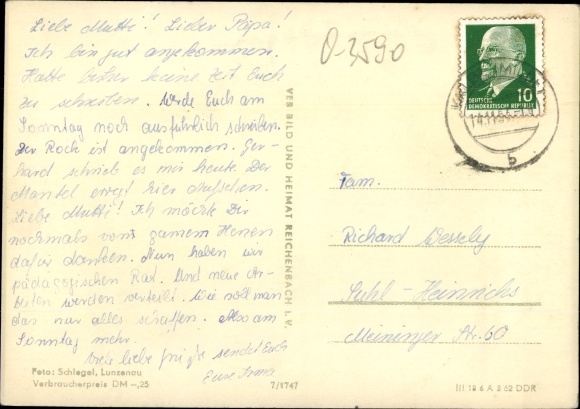 Liebe Mutti! Lieber Papa!
Ich bin gut angekommen.
Hatte bisher keine Zeit Euch
zu schreiben. Werde Euch am
Sonntag noch ausführlich schreiben.
Der Rock ist angekommen. Ger-
hard schrieb es mir heute. Der
Mantel erregt hier Aufsehen.
Liebe Mutti! Ich möchte Dir
nochmals von ganzem Herzen
dafür danken. Nun haben wir
pädagogischen Rat. Und neue Ar-
beiten werden verteilt. Wie soll man
das nur alles schaffen. Also am
Sonntag mehr.
viele liebe Grüße sendet Euch
Eure Irma
Foto: Schlegel, Lunzenau
Verbraucherpreis DM -,25
7/1747
VEB BILD UND HEIMAT REICHENBACH I. V.
0-2590
10
DEUTSCHE
DEMOKRATISCHE REPUBLIK
b
Fam.
Richard Wessely
Suhl-Heinrichs
Meininger Str. 60
III 18 6 A 3 62 DDR